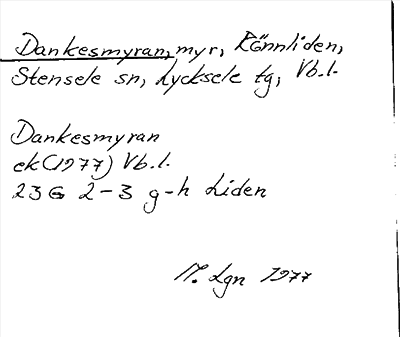 Dankesmyran, myr, Rönnliden,
Stensele sn, Lycksele tg, Vb.l.
Dankesmyran
ek (1977) Vb.l.
23 G 2-3 g-h Liden
M. Lgn 1977